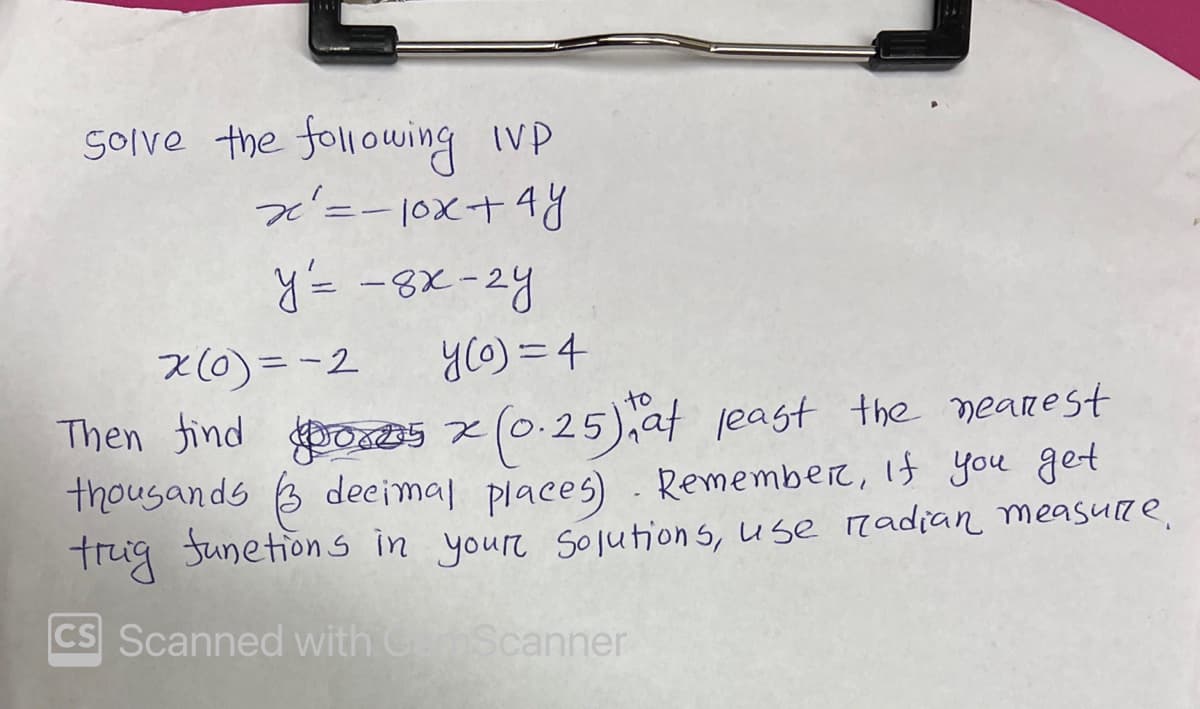 solve the following IVP
x'=-10x+4y
y'= -8x-2y
x(0)=-2 y(0)=4
Then find x(0.25), to at least the nearest
thousands (3 decimal places). Remember, if you get
trig functions in your solutions, use radian measure.
CS Scanned with CamScanner